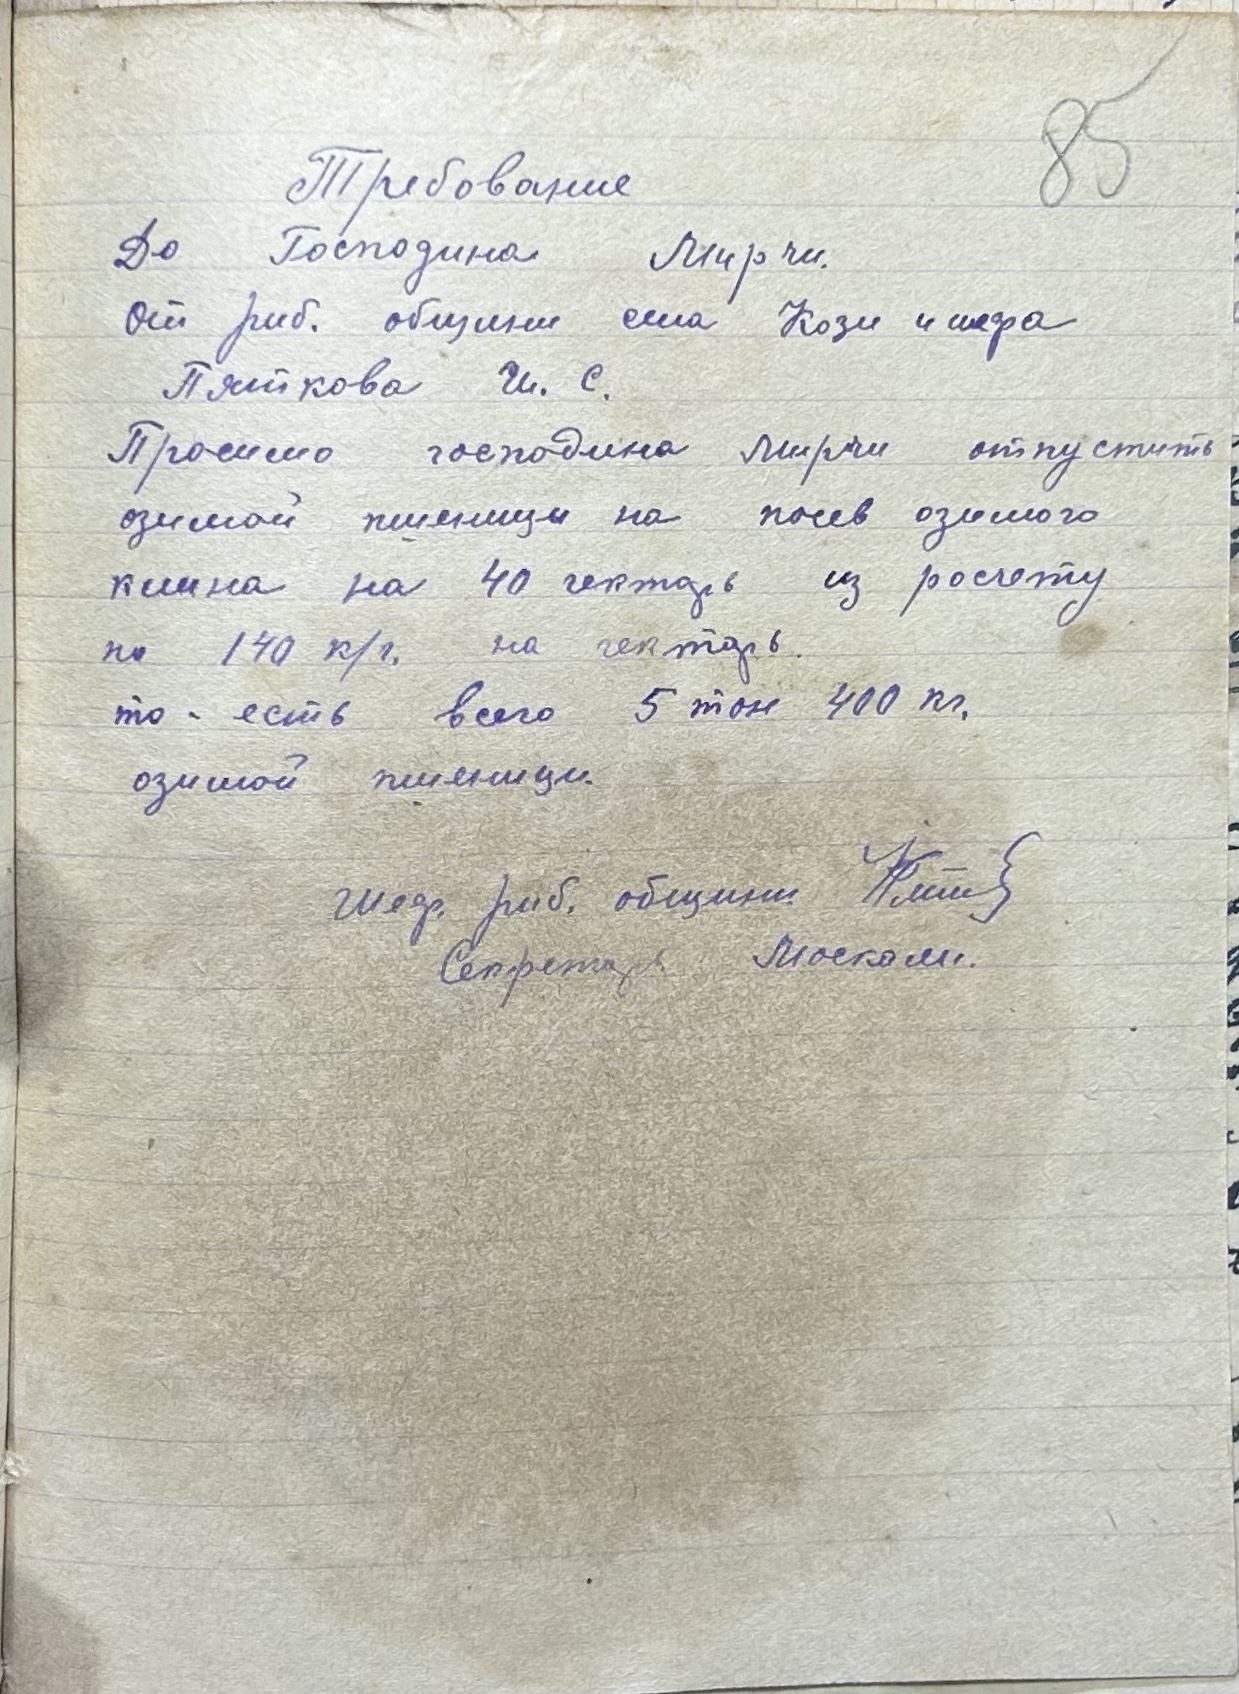 85
Требование
До Господина Мирчи.
От риб. общини села Кози и шефа
Пяткова И. С.
Просимо господина Мирчи отпустить
озимой пшеници на посев озимого
клина на 40 гектарь из росчету
по 140 к/г. на гектарь.
то-есть всего 5 тон 400 кг.
озимой пшеници.
Шеф. риб. общини
Секретарь Москали.